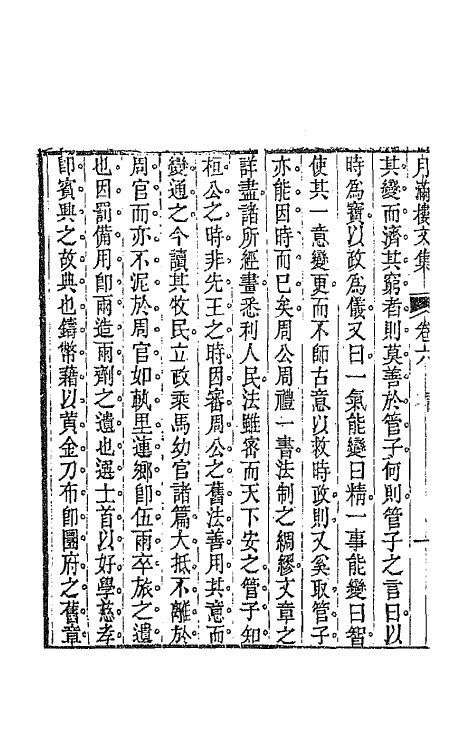 月滿樓文集 卷六
其變而濟其窮者則莫善於管子何則管子之言曰以
時為寶以政為儀又曰一氣能變曰精一事能變曰智
使其一意變更而不師古意以救時政則又奚取管子
亦能因時而已矣周公周禮一書法制之綢繆文章之
詳盡諸所經畫悉利人民法雖密而天下安之管子知
桓公之時非先王之時因審周公之舊法善用其意而
變通之今讀其牧民立政乘馬幼官諸篇大抵不離於
周官而亦不泥於周官如軌里連鄉卽伍兩卒旅之遺
也因罰備用卽兩造兩劑之遺也選士首以好學慈孝
卽賓興之故典也鑄幣藉以黃金刀布卽圜府之舊章